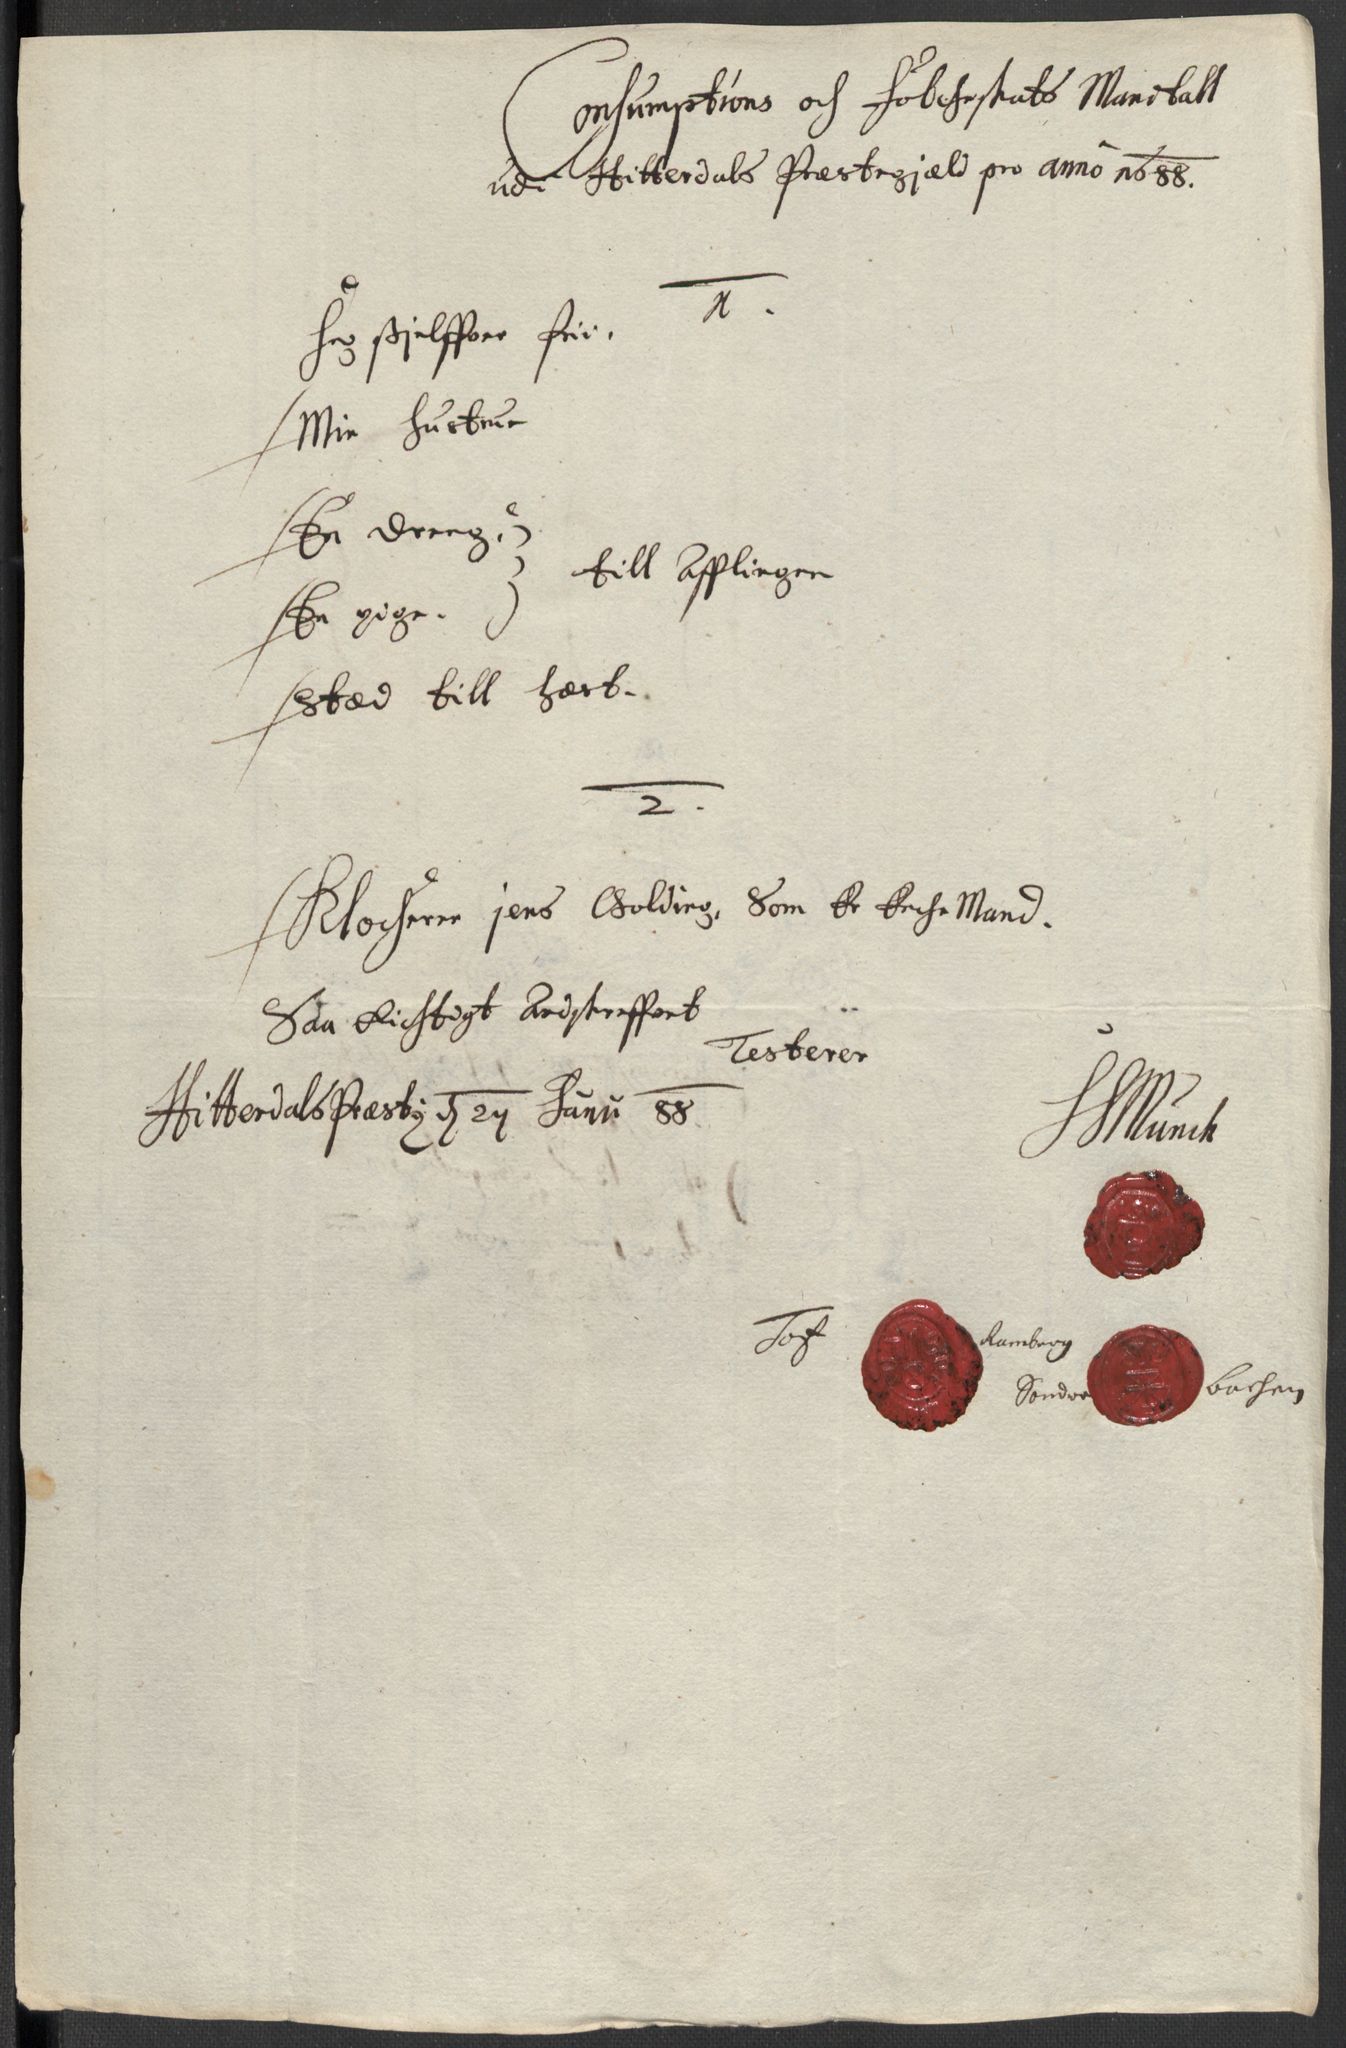 Consumptions och Folcheskats Mandtall
udi Hitterdals Præstegjæld pro anno 1688.
1.
Jeg sjelffver frii.
Min hustrue
En dreng.
En pige.
till Afflingen
Stæd till hæst.
2.
Klocheren jens Colding, Som Er Eche Mand.
Saa Richtigt Andskreffvet
Testerer
Hitterdals Præstg d 27 Janu 88
HMunck
Tof Ramberg
Sondre bachen